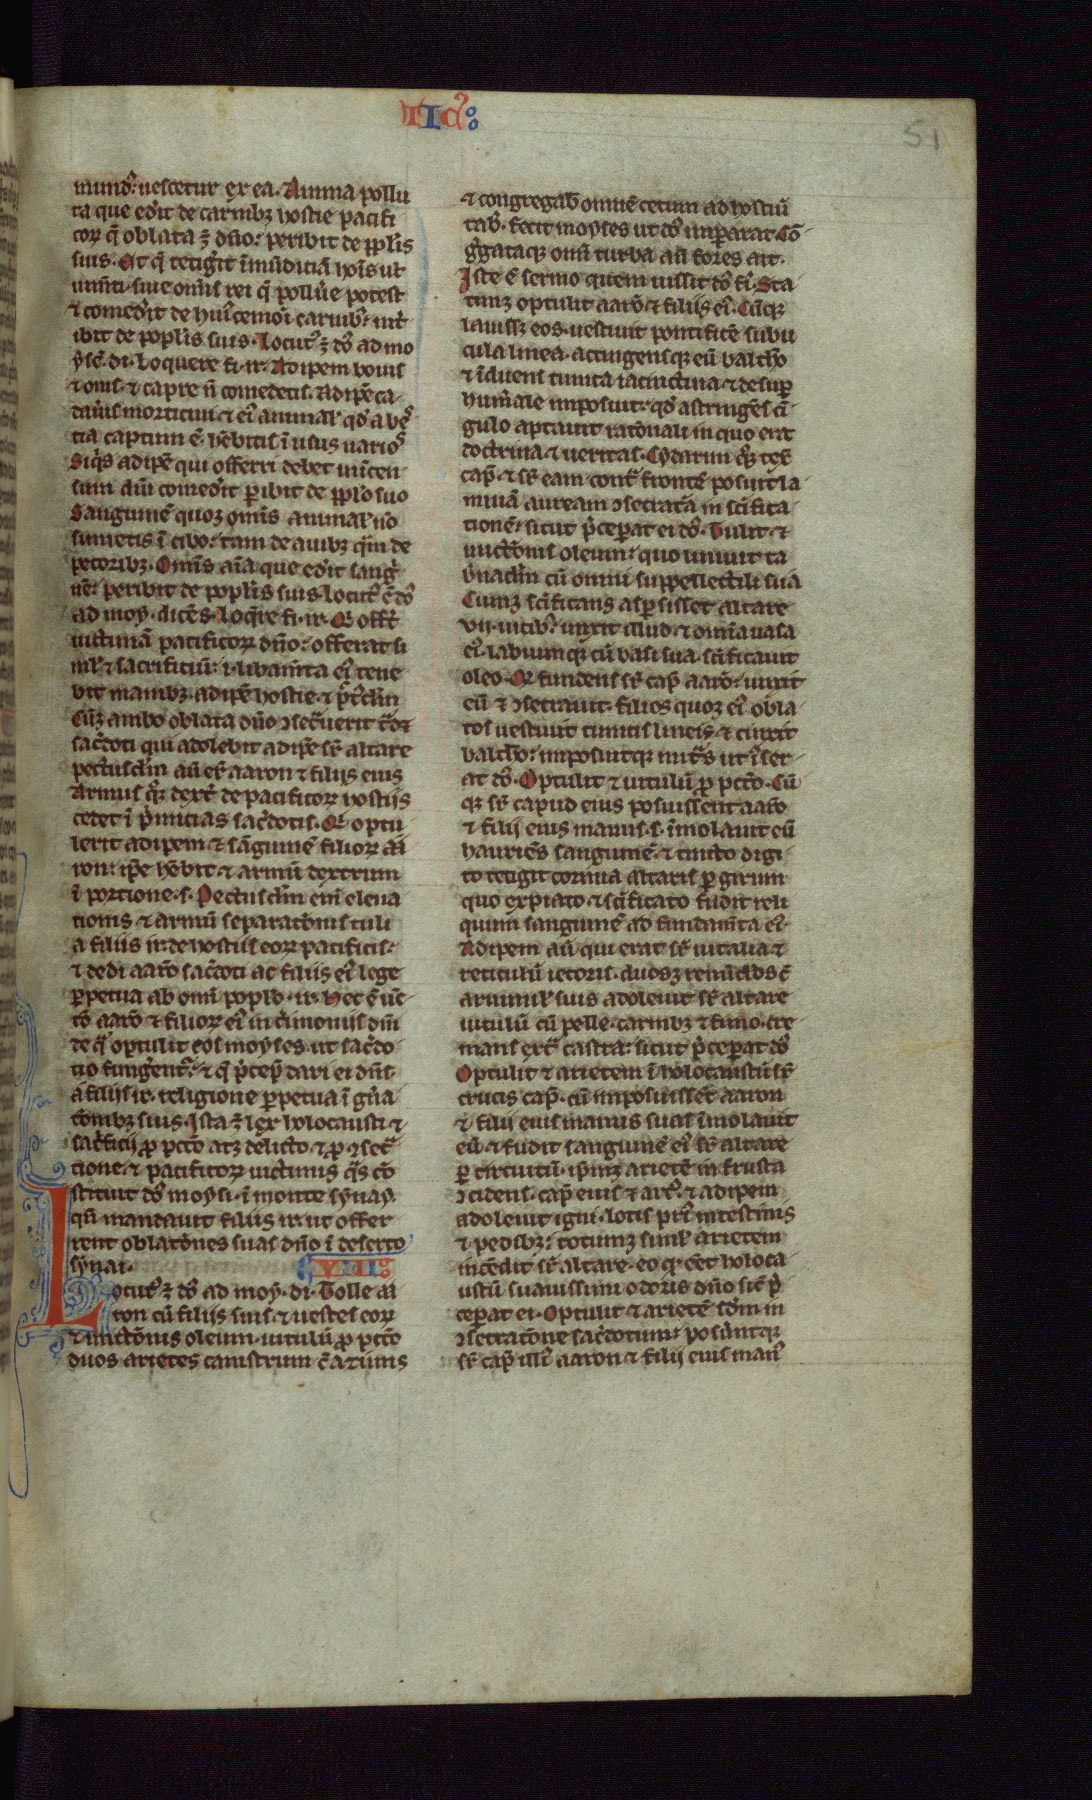 TICꝰ
51
mundꝰ uescetur ex ea. Anima pollu
ta que ederit de carnibꝫ hostie pacifi
corꝝ q̄ oblata ē dn̄o: peribit de pp̄lis
suis. Et q̄ tetigerit īmūdiciā hoīs uel
iumēti. siue omnis rei q̄ polluere potest
⁊ comederit de huiꝰcemodi carnibꝰ: int̾
ibit de populis suis. Locutꝰ ē dn̄s ad mo
ysē. di. Loquere fi. ir̄. Adipem bouis
⁊ ouis ⁊ capre n̄ comedetis. Adipē ca
daueris morticini. ⁊ eiꝰ animal' qd̄ a bes
tia captum ē. hēbitis ī usus uarios
Siq̄s adipē qui offerri debet in incen
sum dn̄i comederit peribit de pp̄lo suo
Sanguinē quoꝫ omnis animal' nō
sumetis ī cibo: tam de auibꝫ q̄m de
pecoribꝫ. Omnis aīa que ederit sangui
nē: peribit de populis suis. Locutꝰ ē dn̄s
ad moy. dicēs. Loq̄re fi. ir̄. Qui offert
uictimā pacificorꝝ dn̄o: offerat si
mul ⁊ sacrificiū. i. libamēta eiꝰ. tene
bit manibꝫ adipē hostie. ⁊ pectusclm
Cūqꝫ ambo oblata dn̄o ↄsecrauerit tradet
sacerdoti qui adolebit adipē sꝑ altare
pectusclm aū erit aaron ⁊ filiis eius
Armus qꝫ dexter de pacificorꝝ hostiis
cedet ī primicias sacerdotis. Qui optu
lerit adipem ⁊ sanguinē filiorꝝ aa
ron: ipse hēbit ⁊ armū dextrum
ī portione. s. Pectusclm enī eleua
tionis ⁊ armū separationis tuli
a filiis ir̄. de hostiis eorꝝ pacificis:
⁊ dedi aaron sacerdoti ac filiis eiꝰ lege
perpetua ab omni populo. ir̄. Hec ē unc
tio aaron ⁊ filiorꝝ eiꝰ in cerimoniis dn̄i
die qua optulit eos moyses. ut sacerdo
tio fungerentur. ⁊ q̄ precepit dari ei dn̄s
a filiis ir̄. religione perpetua ī genera
tionibꝫ suis. Ista ē lex holocausti ⁊
sacrificii pro peccato atqꝫ delicto. ⁊ pro ↄsecra
tione ⁊ pacificorꝝ uictimis quas con
stituit dn̄s moysi. ī monte synay.
qn̄ mandauit filiis ir̄. ut offer
rent oblationes suas dn̄o ī deserto
synai. VIII
Locutꝰ ē dn̄s ad moy. di. Tolle aa
ron cū filiis suis. ⁊ uestes eorꝝ
⁊ unctionis oleum. uitulū pro peccato
duos arietes canistrum cū azimis
⁊ congregabis omnē cetum ad hostiū
tab. fecit moyses ut dn̄s imperarat. Con
gregataqꝫ omni turba an̄ fores ait.
Iste ē sermo quem iussit dn̄s fieri. Sta
timqꝫ optulit aaron ⁊ filios eiꝰ. Cūqꝫ
lauisset eos. uestiuit pontificē subu
cula linea. accingensqꝫ eū baltheo
⁊ īduens tunica iacinctina ⁊ desuper
humerale imposuit: qd̄ astringens cin
gulo aptauit rationali in quo erat
doctrina ⁊ ueritas. Cydarim qꝫ texit
caput. ⁊ sꝑ eam contra frontē posuit la
minā auream ↄsecratā in sanctifica
tionē: sicut preceperat ei dn̄s. Tulit ⁊
unctionis oleum: quo liniuit ta
bernaclm cū omni suppellectili sua
Cumqꝫ sanctificans aspersisset altare
vii. uicibꝰ. unxit illud. ⁊ omnia uasa
eiꝰ. labiumqꝫ cū basi sua sanctificauit
oleo. Qd̄ fundens sꝑ caput aaron: unxit
eū ⁊ ↄsecrauit. filios quoqꝫ eiꝰ obla
tos uestiuit tunicis lineis ⁊ cinxit
baltheo: imposuitqꝫ mitras ut iusser
at dn̄s. Optulit ⁊ uitulū pro peccato. Cū
qꝫ sꝑ capud eius posuissent aaron
⁊ filii eius manus. s. īmolauit eū
hauriēs sanguinē. ⁊ tincto digi
to tetigit cornua altaris per girum
quo expiato ⁊ sanctificato fudit reli
quum sanguinē ad fundamēta eiꝰ.
Adipem aū qui erat sꝑ uitalia ⁊
reticulū iecoris. duosqꝫ renunculos cū
aruinulis suis adoleuit sꝑ altare
uitulū cū pelle. carnibꝫ ⁊ fimo. cre
mans extra castra: sicut preceperat dn̄s
Optulit ⁊ arietem ī holocaustū sꝑ
cuius caput. cū imposuissēt aaron
⁊ filii eius manus suas īmolauit
eū. ⁊ fudit sanguinē eiꝰ sꝑ altare
per circuitū. ipsumqꝫ arietē in frusta
ↄcidens. caput eius ⁊ artꝰ. ⁊ adipem
adoleuit igni. lotis prius intestinis
⁊ pedibꝫ: totumqꝫ simul arietem
incendit sꝑ altare. eo qd̄ eēt holoca
ustū suauissimi odoris dn̄o sicut pre
ceperat ei. Optulit ⁊ arietē secundū in
ↄsecratione sacerdotum: posueruntqꝫ
sꝑ caput illiꝰ aaron ⁊ filii eius manꝰ